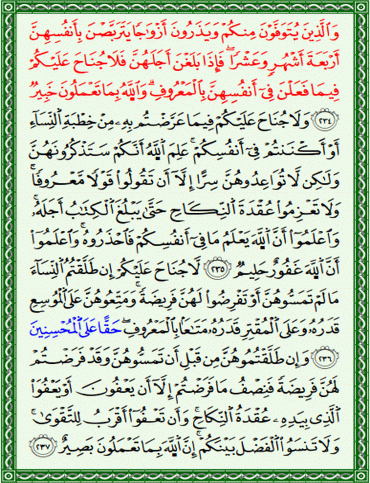 وَالَّذِينَ يُتَوَفَّوْنَ مِنكُمْ وَيَذَرُونَ أَزْوَاجًا يَتَرَبَّصْنَ بِأَنفُسِهِنَّ
أَرْبَعَةَ أَشْهُرٍ وَعَشْرًا ۖ فَإِذَا بَلَغْنَ أَجَلَهُنَّ فَلَا جُنَاحَ عَلَيْكُمْ
فِيمَا فَعَلْنَ فِي أَنفُسِهِنَّ بِالْمَعْرُوفِ ۗ وَاللَّهُ بِمَا تَعْمَلُونَ خَبِيرٌ
٢٣٤ وَلَا جُنَاحَ عَلَيْكُمْ فِيمَا عَرَّضْتُم بِهِ مِنْ خِطْبَةِ النِّسَاءِ
أَوْ أَكْنَنتُمْ فِي أَنفُسِكُمْ ۚ عَلِمَ اللَّهُ أَنَّكُمْ سَتَذْكُرُونَهُنَّ
وَلَٰكِن لَّا تُوَاعِدُوهُنَّ سِرًّا إِلَّا أَن تَقُولُوا قَوْلًا مَّعْرُوفًا ۚ
وَلَا تَعْزِمُوا عُقْدَةَ النِّكَاحِ حَتَّىٰ يَبْلُغَ الْكِتَابُ أَجَلَهُ ۚ
وَاعْلَمُوا أَنَّ اللَّهَ يَعْلَمُ مَا فِي أَنفُسِكُمْ فَاحْذَرُوهُ ۚ وَاعْلَمُوا
أَنَّ اللَّهَ غَفُورٌ حَلِيمٌ ٢٣٥ لَّا جُنَاحَ عَلَيْكُمْ إِن طَلَّقْتُمُ النِّسَاءَ
مَا لَمْ تَمَسُّوهُنَّ أَوْ تَفْرِضُوا لَهُنَّ فَرِيضَةً ۚ وَمَتِّعُوهُنَّ عَلَى الْمُوسِعِ
قَدَرُهُ وَعَلَى الْمُقْتِرِ قَدَرُهُ مَتَاعًا بِالْمَعْرُوفِ ۖ حَقًّا عَلَى الْمُحْسِنِينَ
٢٣٦ وَإِن طَلَّقْتُمُوهُنَّ مِن قَبْلِ أَن تَمَسُّوهُنَّ وَقَدْ فَرَضْتُمْ
لَهُنَّ فَرِيضَةً فَنِصْفُ مَا فَرَضْتُمْ إِلَّا أَن يَعْفُونَ أَوْ يَعْفُوَا
الَّذِي بِيَدِهِ عُقْدَةُ النِّكَاحِ ۚ وَأَن تَعْفُوا أَقْرَبُ لِلتَّقْوَىٰ ۚ
وَلَا تَنسَوُا الْفَضْلَ بَيْنَكُمْ ۚ إِنَّ اللَّهَ بِمَا تَعْمَلُونَ بَصِيرٌ ٢٣٧